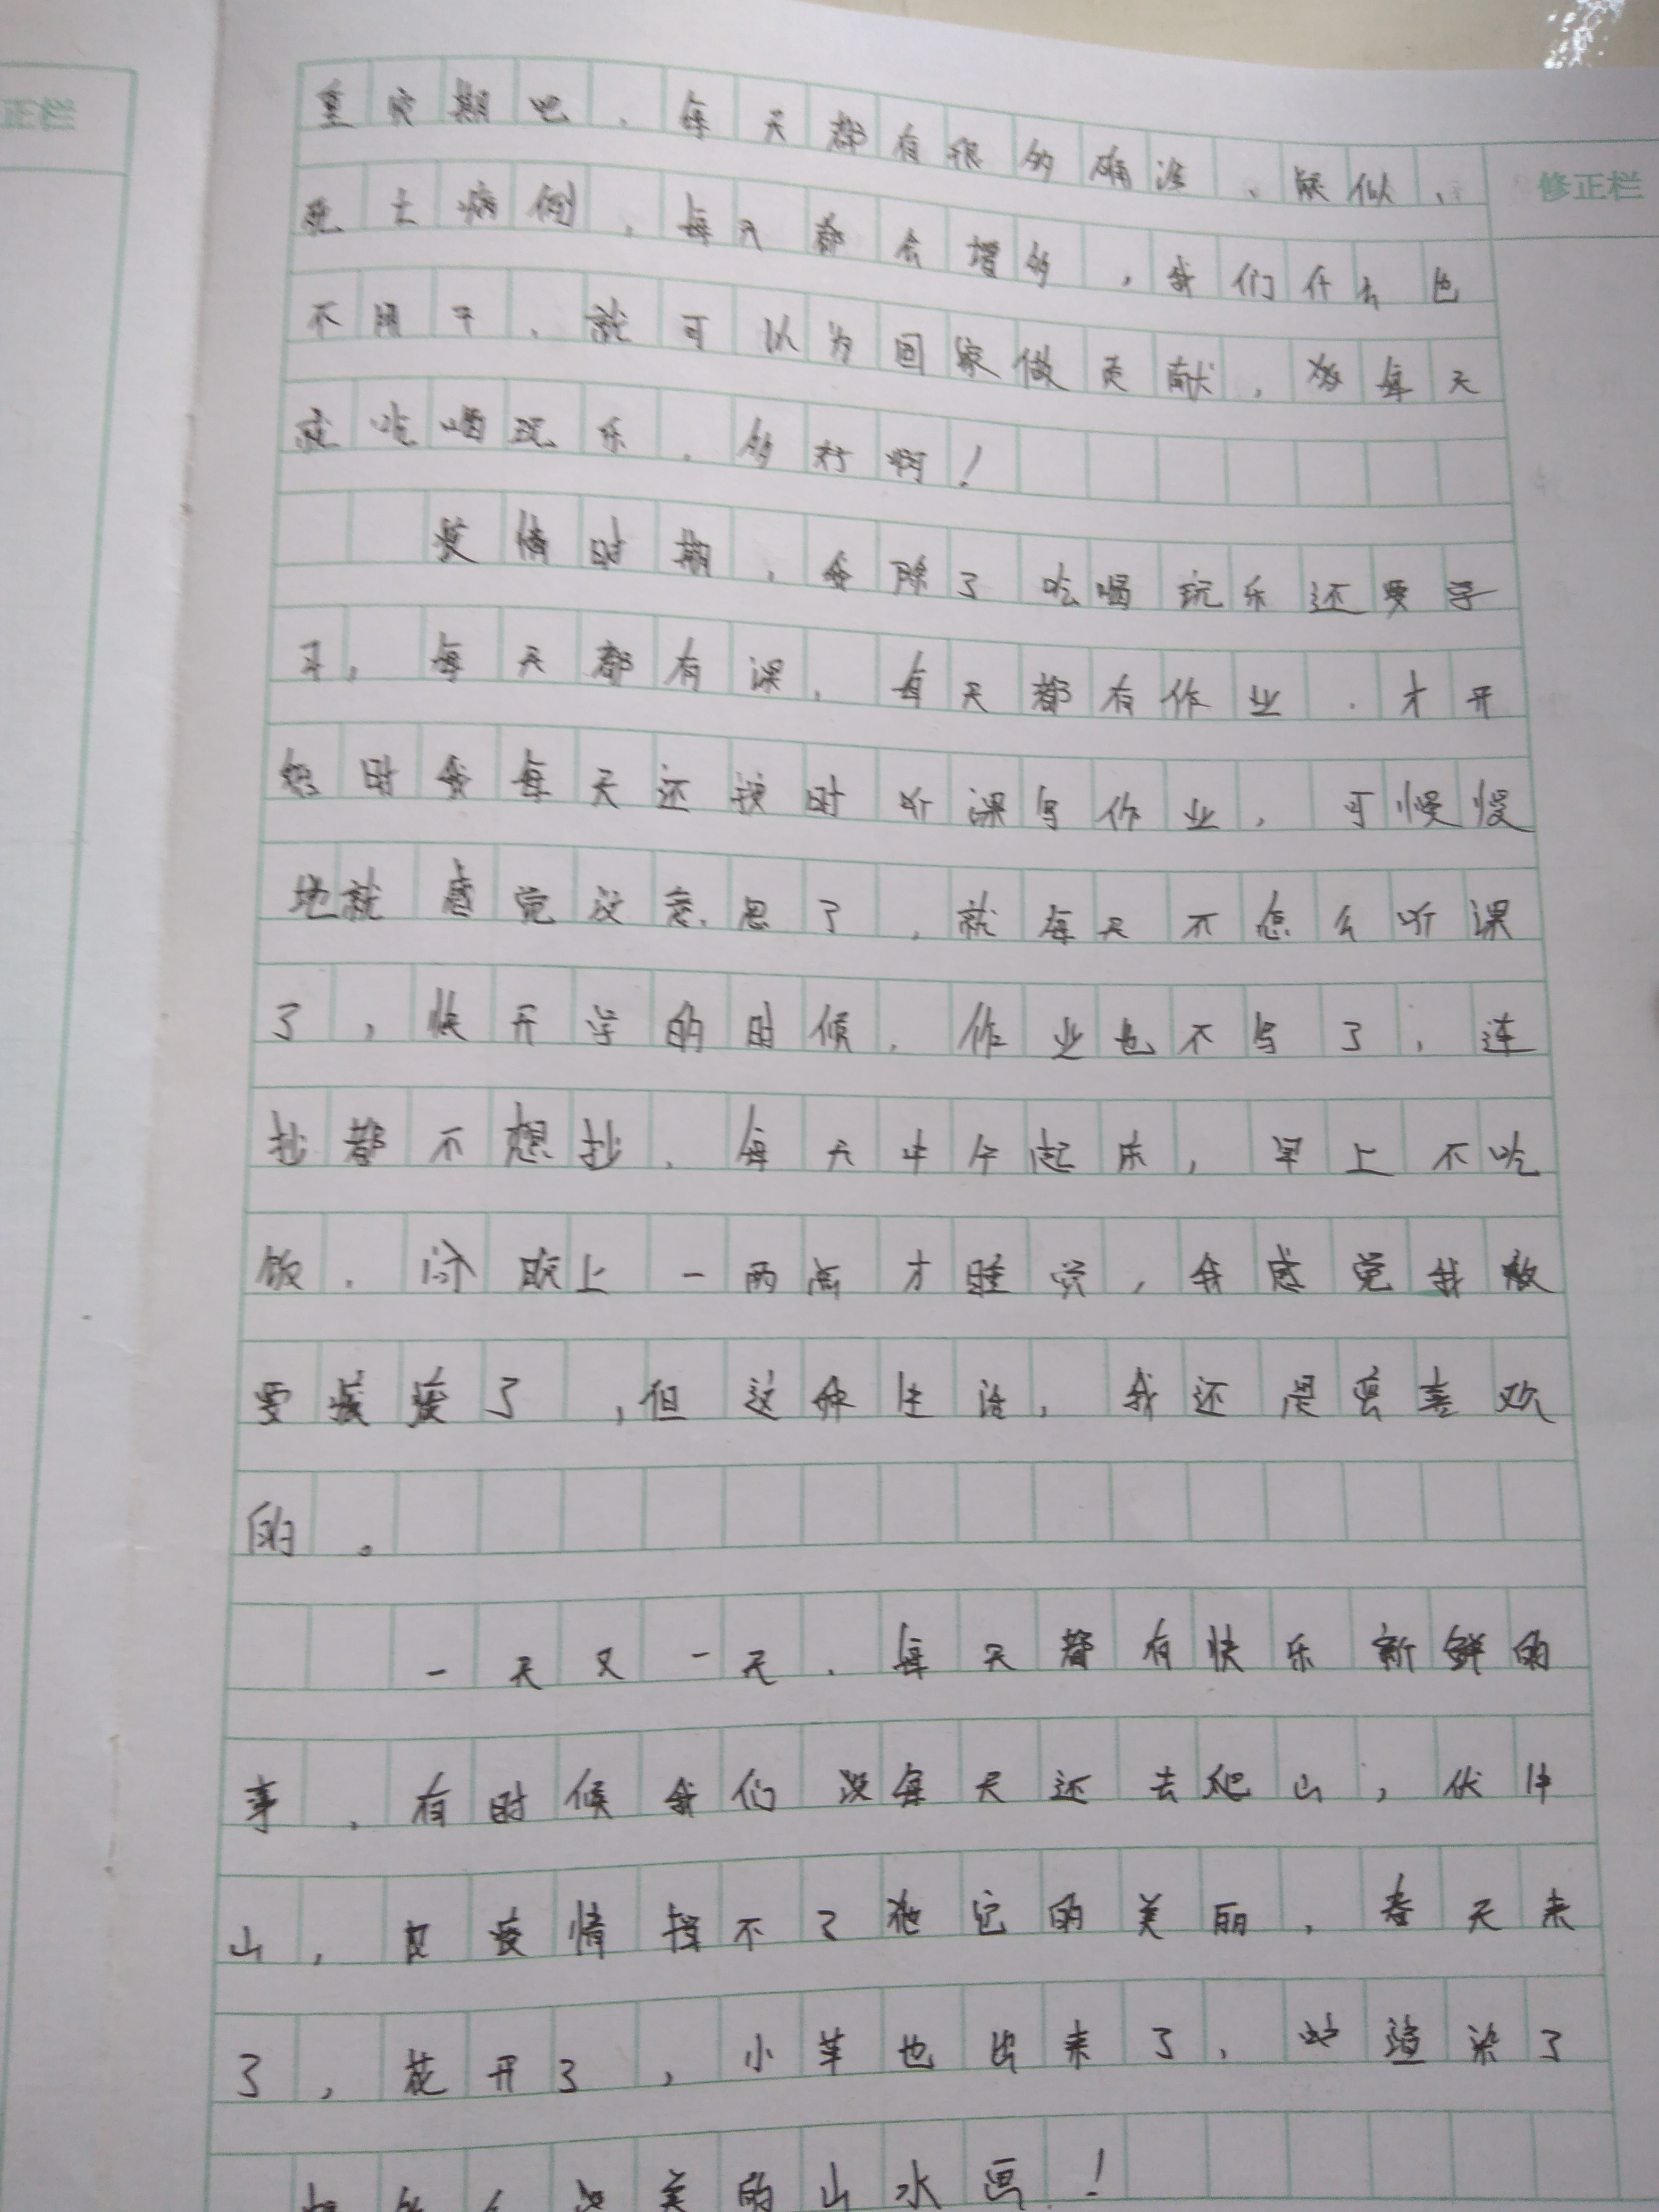 正栏
修正栏
重灾期吧,每天都有很的确准、疑似、
死亡病例,每天都会增的,我们什么也
不用干,就可以为国家做贡献,每天
就吃喝玩乐,的行啊!
疫情时期,我除了吃喝玩乐还要学
习,每天都有课,每天都有作业.才开
始时我每天还按时听课写作业,可慢慢
地就感觉没意思了,就每天不怎么听课
了,快开学的时候,作业也不写了,连
抄都不想抄,每天中午起床,早上不吃
饭,晚上一两点才睡觉,我感觉我
要废废了,但这种生活,我还是喜欢
的。
一天又一天.每天都有快乐新鲜的
事,有时候我们每天还去爬山,伏牛
山,疫情挡不了它的美丽,春天来
了,花开了,小草也出来了,渲染了
美的山水画!